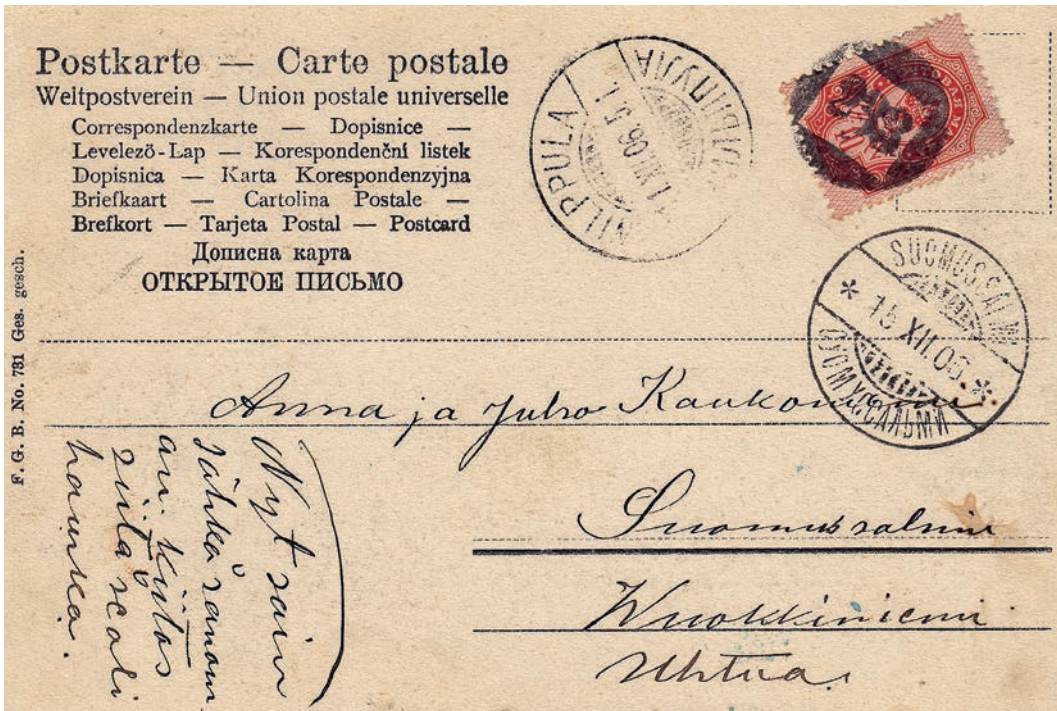 Postkarte — Carte postale
Weltpostverein — Union postale universelle
Correspondenzkarte — Dopisnice —
Levelező-Lap — Korespondenční listek
Dopisnica — Karta Korespondenzyjna
Briefkaart — Cartolina Postale —
Brefkort — Tarjeta Postal — Postcard
Дописна карта
ОТКРЫТОЕ ПИСЬМО
F. G. B. No. 731 Ges. gesch.
FILPPULA
1.XII.06.
ФИЛЬПУЛА
SUOMUSSALMI
* 15 XII.06. *
СУОМУССАЛЬМИ
Anna ja Juho
Suomussalmi
Wuokkiniemi
Uhtua.
Nyt sain
sähkösanom
ani. kiitos
siitä se oli
hauska.